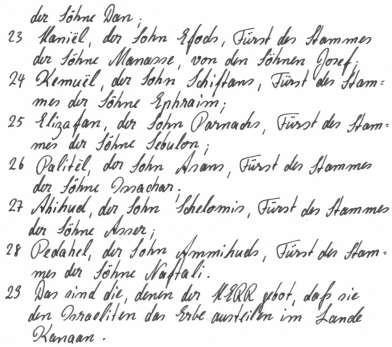 der Söhne Dan;
23 Haniël, der Sohn Efods, Fürst des Stammes
der Söhne Manasse, von den Söhnen Josef;
24 Kemuël, der Sohn Schiftans, Fürst des Stam=
mes der Söhne Ephraim;
25 Elizafan, der Sohn Parnachs, Fürst des Stam=
mes der Söhne Sebulon;
26 Paltiël, der Sohn Asans, Fürst des Stammes
der Söhne Issachar;
27 Ahihud, der Sohn Schelomis, Fürst des Stammes
der Söhne Asser;
28 Pedahel, der Sohn Ammihuds, Fürst des Stam=
mes der Söhne Naftali.
29 Das sind die, denen der HERR gebot, daß sie
den Israeliten das Erbe austeilen im Lande
Kanaan.